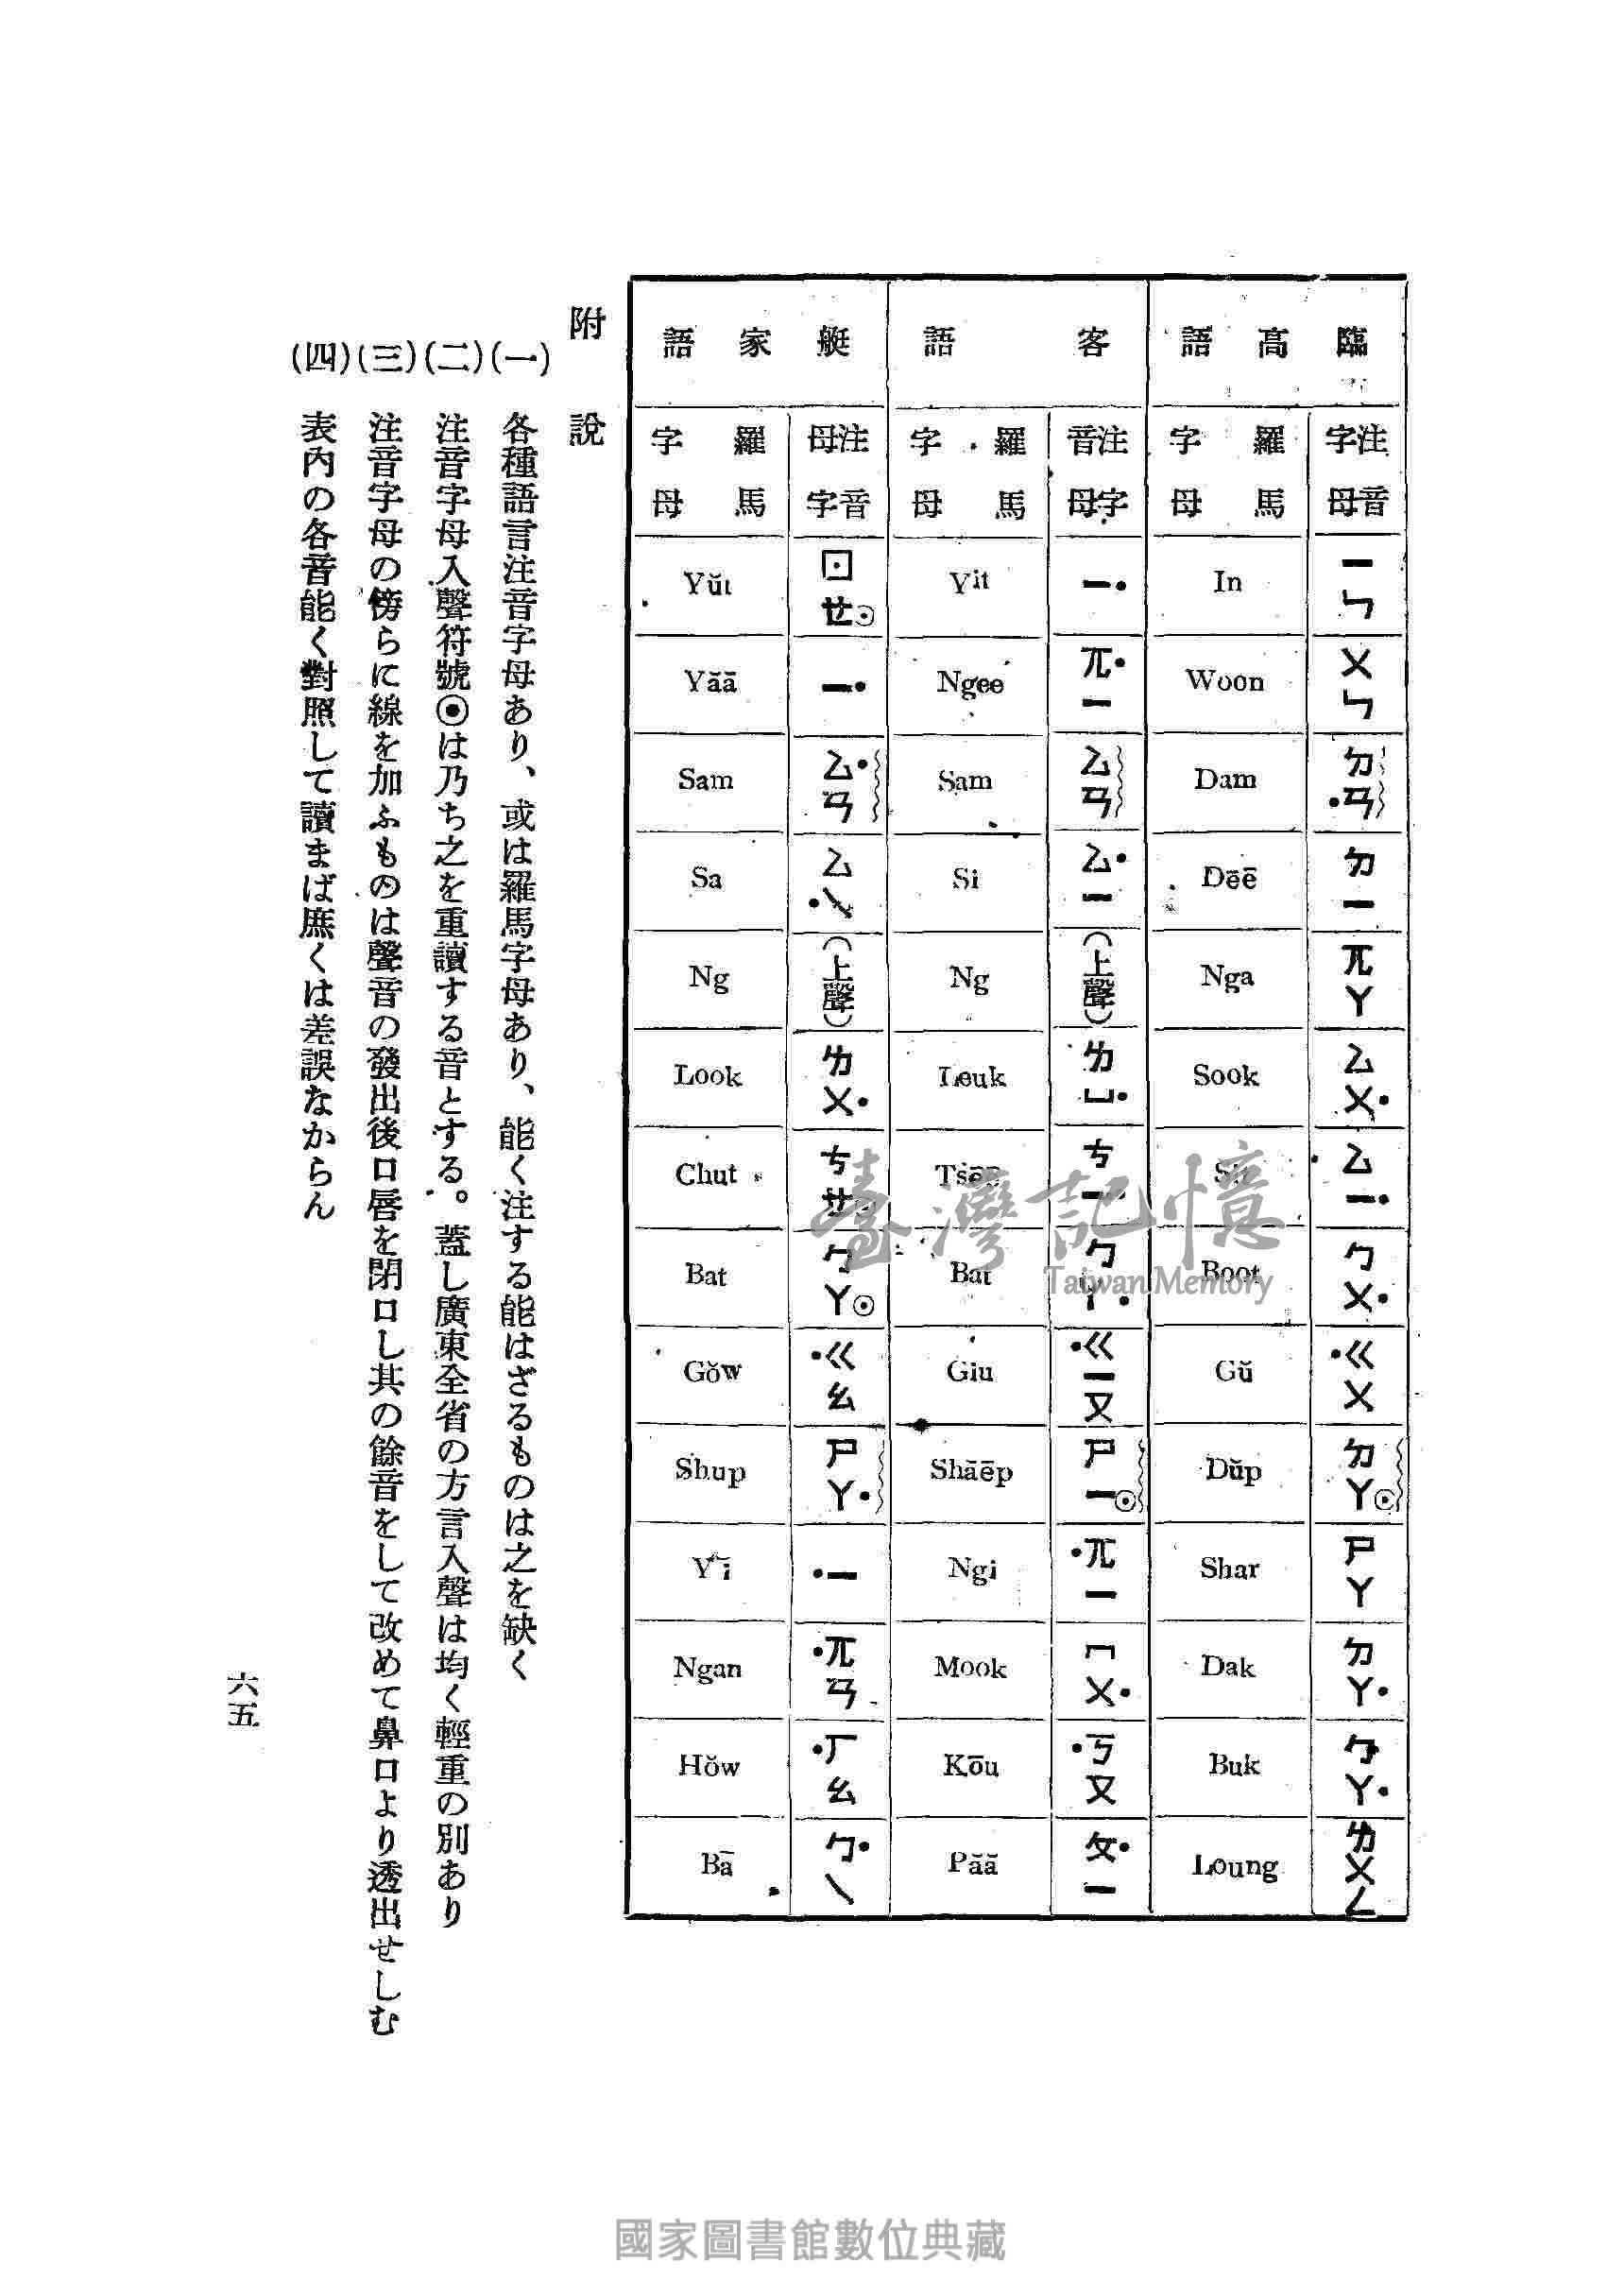 臨高語
注音字母
羅馬字母
ㄧㄣ In
ㄨㄣ Woon
ㄉㄢ Dam
ㄉㄧ Dēē
ㄫㄚ Nga
ㄙㄨ Sook
ㄙㄧ
ㄅㄨ Boot
ㄍㄨ Gŭ
ㄉㄚ⊙ Dŭp
ㄕㄚ Shar
ㄉㄚ Dak
ㄅㄚ Buk
ㄌㄨㄥ Loung
客語
注音字母
羅馬字母
ㄧ Yit
ㄫㄧ Ngee
ㄙㄢ Sam
ㄙㄧ Si
(上聲) Ng
ㄌㄩ Leuk
ㄘㄧ
ㄅㄚ Bat
ㄍㄧㄡ Giu
ㄕㄧ⊙ Shāēp
ㄫㄧ Ngi
ㄇㄨ Mook
ㄎㄡ Kōu
ㄆㄧ Păă
艇家語
注音字母
羅馬字母
ㄖㄝ⊙ Yŭt
ㄧ Yăă
ㄙㄢ Sam
ㄙ Sa
(上聲) Ng
ㄌㄨ Look
ㄘㄝ Chut
ㄅㄚ⊙ Bat
ㄍㄠ Gŏw
ㄕㄚ Shup
ㄧ
ㄫㄢ Ngan
ㄏㄠ Hŏw
ㄅㄟ Bā
附說
(一)各種語言注音字母あり、或は羅馬字母あり、能く注する能はざるものは之を缺く
(二)注音字母入聲符號⊙は乃ち之を重讀する音とする。蓋し廣東全省の方言入聲は均く輕重の別あり
(三)注音字母の傍らに線を加ふものは聲音の發出後口唇を閉口し其の餘音をして改めて鼻口より透出せしむ
(四)表內の各音能く對照して讀まば庶くは差誤なからん
六五
臺灣記憶
Taiwan Memory
國家圖書館數位典藏